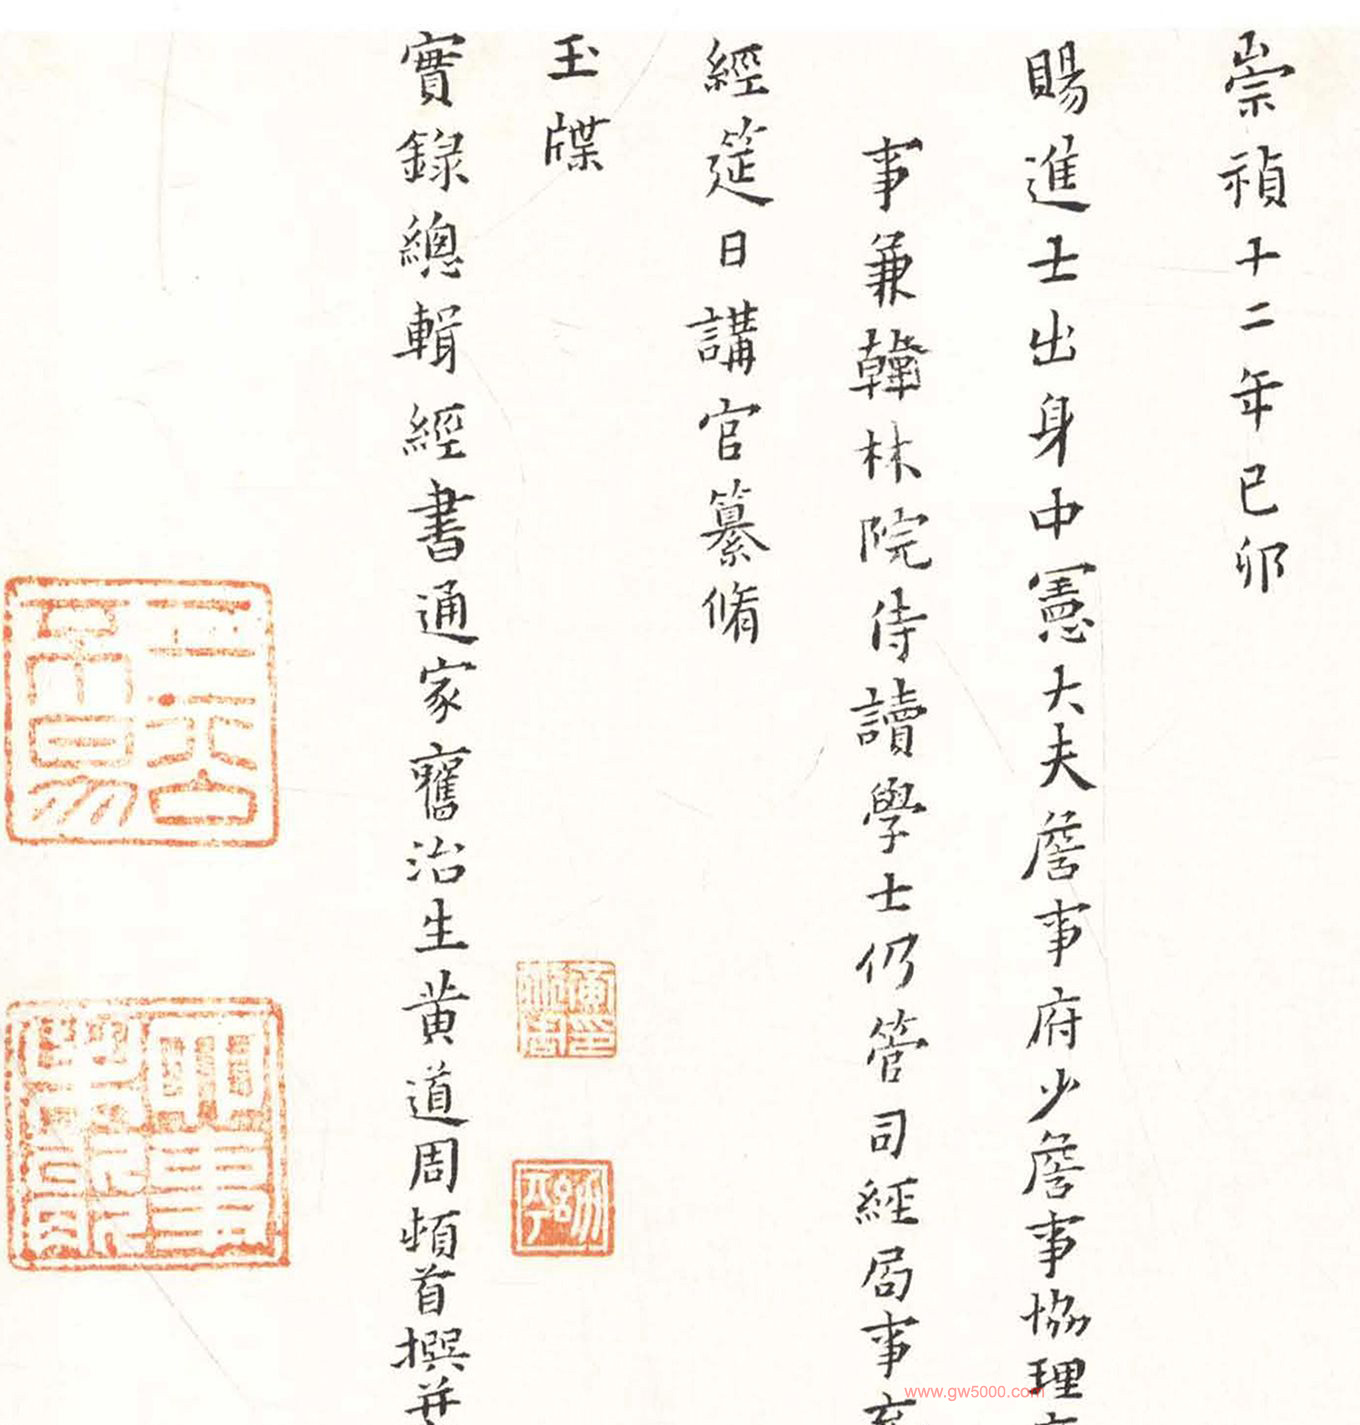 崇禎十二年己卯
賜進士出身中憲大夫詹事府少詹事協理
事兼翰林院侍讀學士仍管司經局事充
經筵日講官纂脩
玉牒
實錄總輯經書通家舊治生黃道周頓首撰并
www.gw5000.com